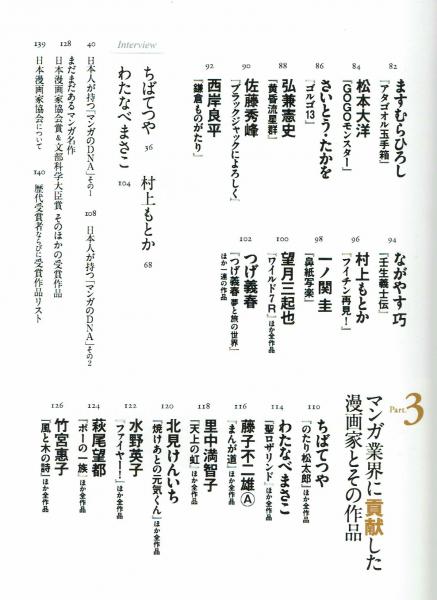 82
ますむらひろし
『アタゴオル玉手箱』
84
松本大洋
『GOGOモンスター』
86
さいとう・たかを
『ゴルゴ13』
88
弘兼憲史
『黄昏流星群』
90
佐藤秀峰
『ブラックジャックによろしく』
92
西岸良平
『鎌倉ものがたり』
94
ながやす 巧
『壬生義士伝』
96
村上もとか
『フイチン再見!』
98
一ノ関 圭
『鼻紙写楽』
100
望月三起也
『ワイルド7R』ほか全作品
102
つげ義春
『つげ義春 夢と旅の世界』
ほか一連の作品
Part.3
マンガ業界に貢献した
漫画家とその作品
110
ちばてつや
『のたり松太郎』ほか全作品
114
わたなべまさこ
『聖ロザリンド』ほか全作品
116
藤子不二雄Ⓐ
『まんが道』ほか全作品
118
里中満智子
『天上の虹』ほか全作品
120
北見けんいち
『焼けあとの元気くん』ほか全作品
122
水野英子
『ファイヤー!』ほか全作品
124
萩尾望都
『ポーの一族』ほか全作品
126
竹宮惠子
『風と木の詩』ほか全作品
Interview
ちばてつや 36 村上もとか 68
わたなべまさこ 104
40 日本人が持つ「マンガのDNA」その1 108 日本人が持つ「マンガのDNA」その2
まだまだあるマンガ名作
128 日本漫画家協会賞&文部科学大臣賞 そのほかの受賞作品
139 日本漫画家協会について 140 歴代受賞者ならびに受賞作品リスト